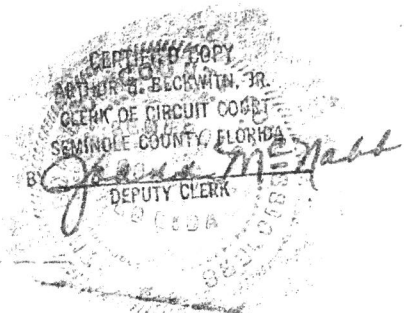 CERTIFIED COPY
ARTHUR H. BECKWITH, JR.
CLERK OF CIRCUIT COURT
SEMINOLE COUNTY, FLORIDA
BY Joanne McNabb
DEPUTY CLERK